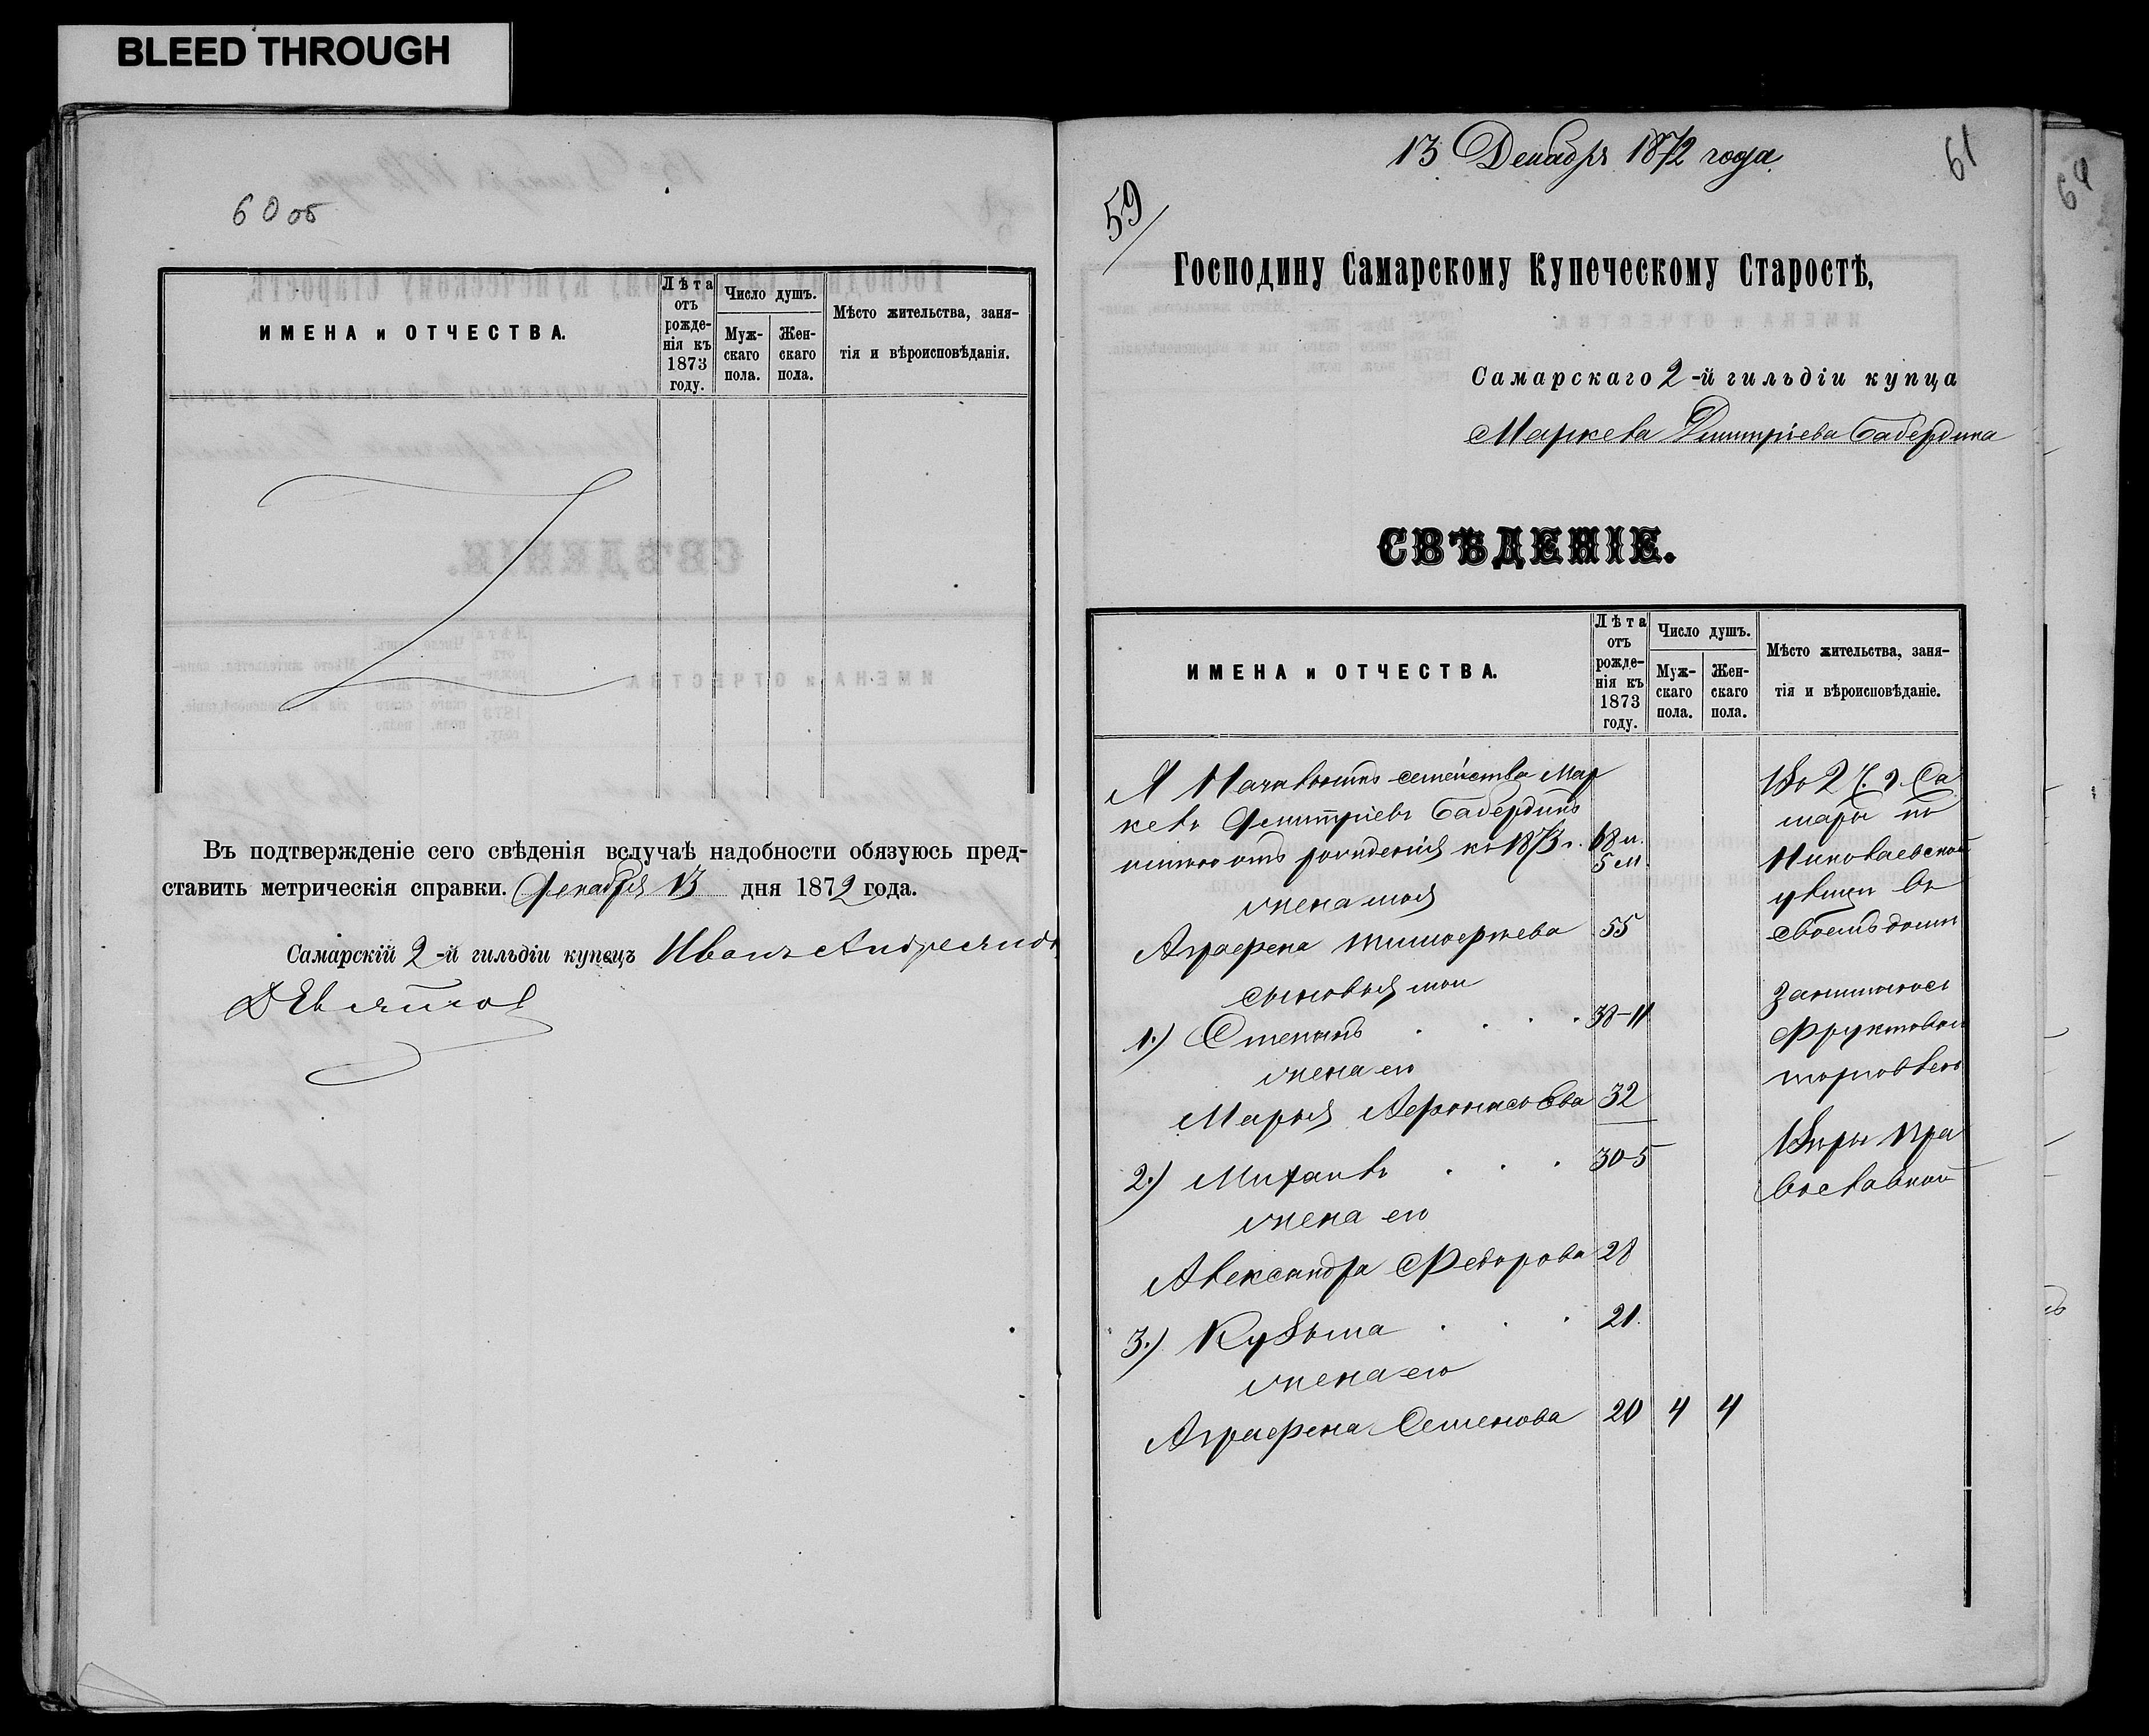 BLEED THROUGH
60 об
ИМЕНА и ОТЧЕСТВА.
Лѣта отъ рожденія къ 1873 году.
Число душъ.
Мужскаго пола.
Женскаго пола.
Мѣсто жительства, занятія и вѣроисповѣданія.
Въ подтвержденіе сего свѣденія вслучаѣ надобности обязуюсь пред-
ставить метрическія справки. Декабря 13 дня 1872 года.
Самарскій 2-й гильдіи купецъ Иванъ Андреянов
13 Декабря 1872 года.
61
64
59
Господину Самарскому Купеческому Старостѣ,
Самарскаго 2-й гильдіи купца
Маркела Дмитріева Бабердина
СВѢДЕНІЕ.
ИМЕНА и ОТЧЕСТВА.
Лѣта отъ рожденія къ 1873 году.
Число душъ.
Мужскаго пола.
Женскаго пола.
Мѣсто жительства, занятія и вѣроисповѣданіе.
Я Началникъ семейства Мар
келъ Дмитріевъ Бабердинъ
имею отъ рожденія къ 1873 г. 68 л.
5 м.
жена моя
Аграфена Тимоферева 55
сыновья мои
1.) Степанъ 38-11
жена его
Марья Афонасьева 32
2.) Михаилъ 30-5
жена его
Александра Федорова 28
3.) Кузьма 21.
жена его
Аграфена Семенова 20 4 4
Во 2 ч. г. Са
мары по
Николаевской
улицы въ
своемъ доми
Занимаюсь
Фруктовой
торговлею
Веры Пра
вославной